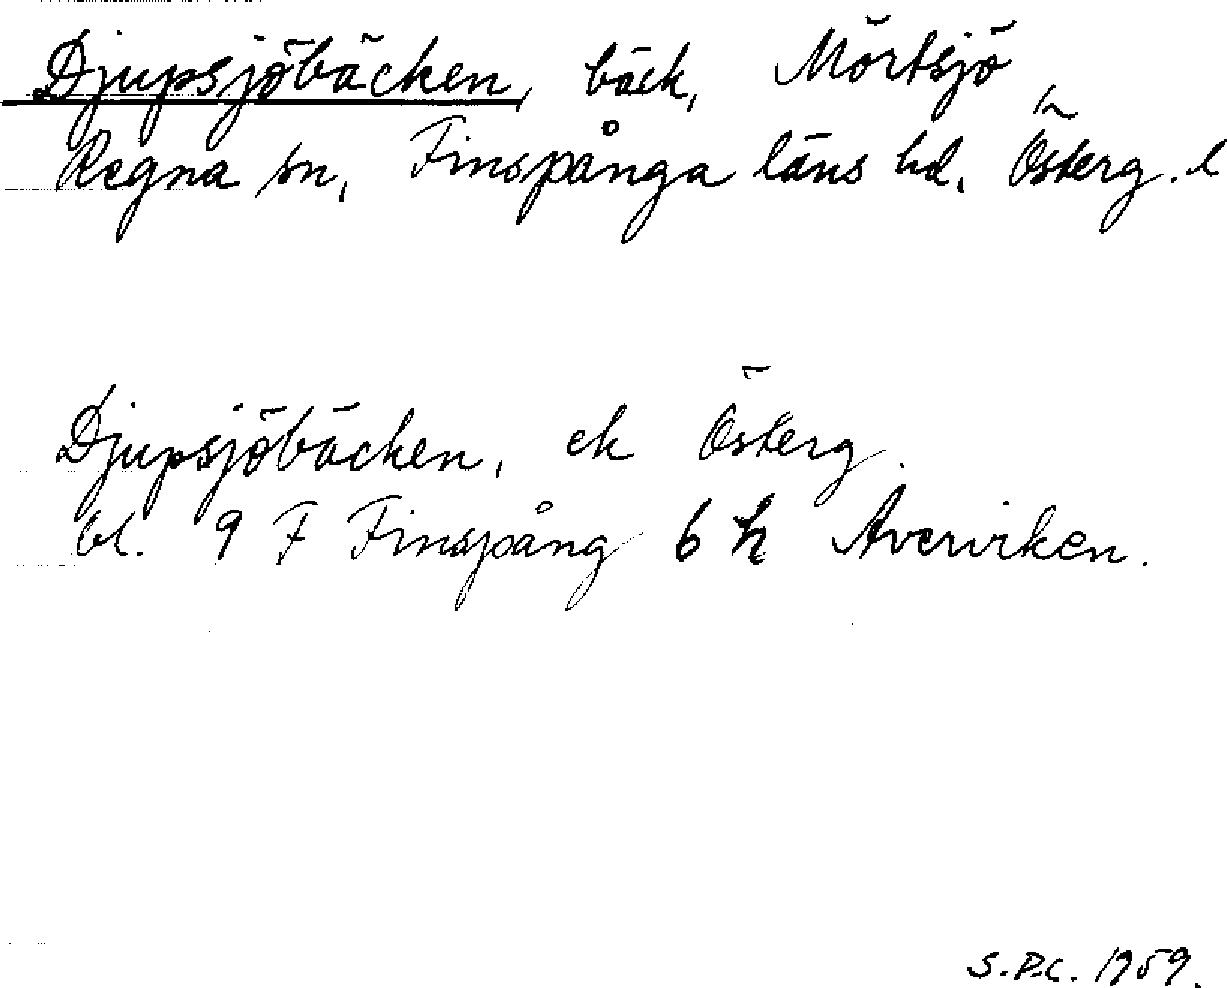 Djupsjöbäcken, bäck, Mörtsjö
Regna sn, Finspånga läns hd. Österg. l
Djupsjöbäcken, ek Österg.
bl. 9 F Finspång 6 h Averviken.
S.P.C. 1959.